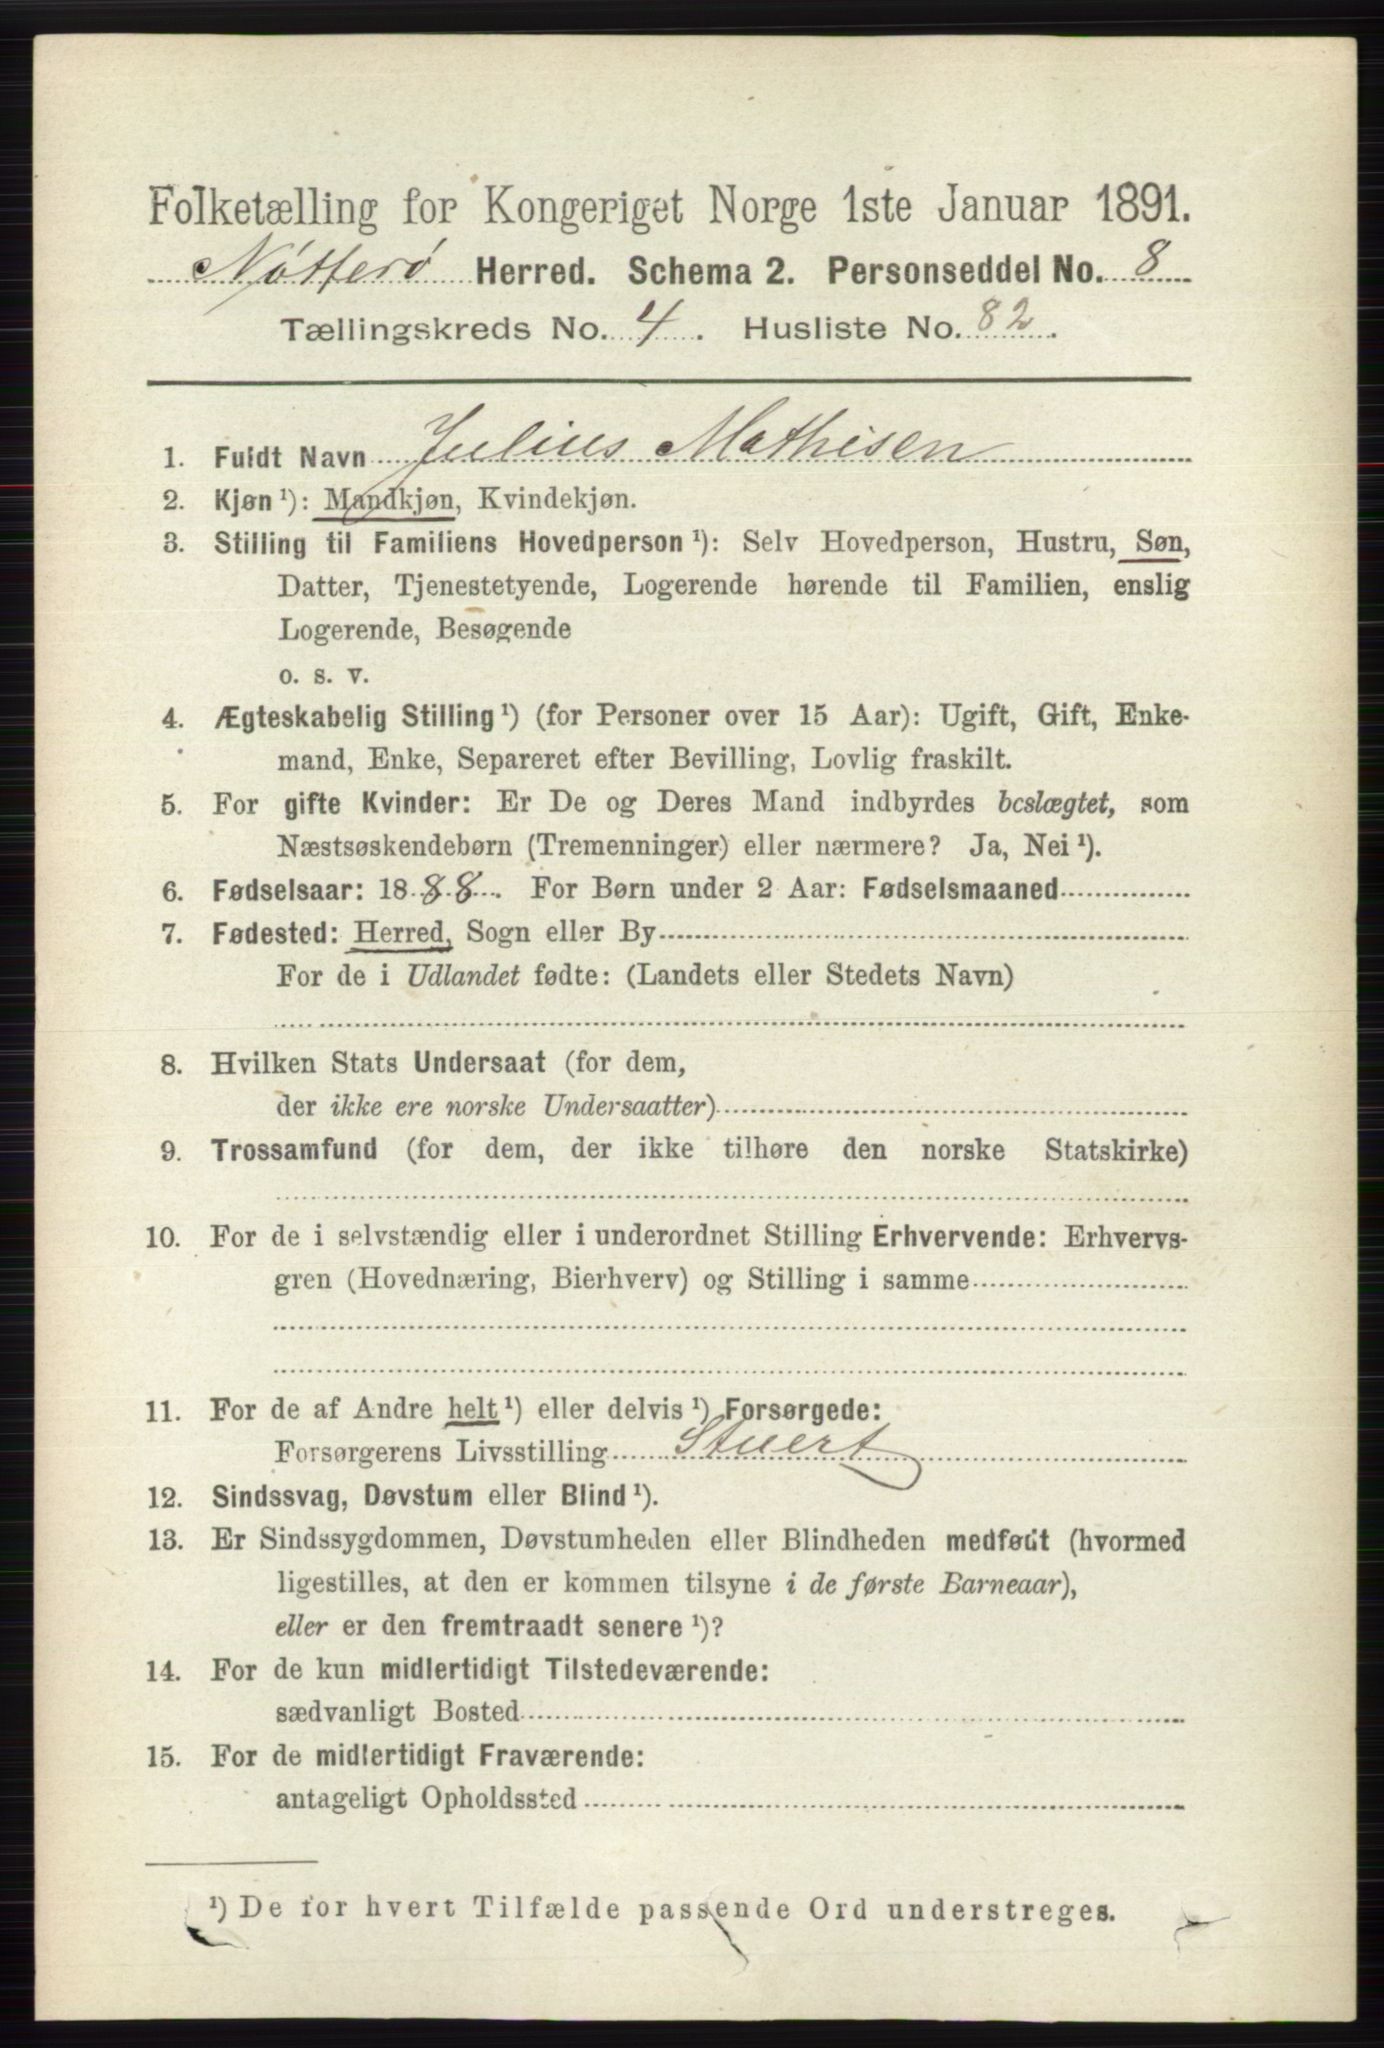 Folketælling for Kongeriget Norge 1ste Januar 1891.
Nøtterø Herred. Schema 2. Personseddel No. 8
Tællingskreds No. 4. Husliste No. 82.
1. Fuldt Navn Julius Mathisen
2. Kjøn ¹): Mandkjøn, Kvindekjøn.
3. Stilling til Familiens Hovedperson ¹): Selv Hovedperson, Hustru, Søn,
Datter, Tjenestetyende, Logerende hørende til Familien, enslig
Logerende, Besøgende
o. s. v.
4. Ægteskabelig Stilling ¹) (for Personer over 15 Aar): Ugift, Gift, Enke-
mand, Enke, Separeret efter Bevilling, Lovlig fraskilt.
5. For gifte Kvinder: Er De og Deres Mand indbyrdes beslægtet, som
Næstsøskendebørn (Tremenninger) eller nærmere? Ja, Nei ¹).
6. Fødselsaar: 1888. For Børn under 2 Aar: Fødselsmaaned
7. Fødested: Herred, Sogn eller By
For de i Udlandet fødte: (Landets eller Stedets Navn)
8. Hvilken Stats Undersaat (for dem,
der ikke ere norske Undersaatter)
9. Trossamfund (for dem, der ikke tilhøre den norske Statskirke)
10. For de i selvstændig eller i underordnet Stilling Erhvervende: Erhvervs-
gren (Hovednæring, Bierhverv) og Stilling i samme
11. For de af Andre helt ¹) eller delvis ¹) Forsørgede:
Forsørgerens Livsstilling Stuert
12. Sindssvag, Døvstum eller Blind ¹).
13. Er Sindssygdommen, Døvstumheden eller Blindheden medfødt (hvormed
ligestilles, at den er kommen tilsyne i de første Barneaar),
eller er den fremtraadt senere ¹)?
14. For de kun midlertidigt Tilstedeværende:
sædvanligt Bosted
15. For de midlertidigt Fraværende:
antageligt Opholdssted
¹) De for hvert Tilfælde passende Ord understreges.